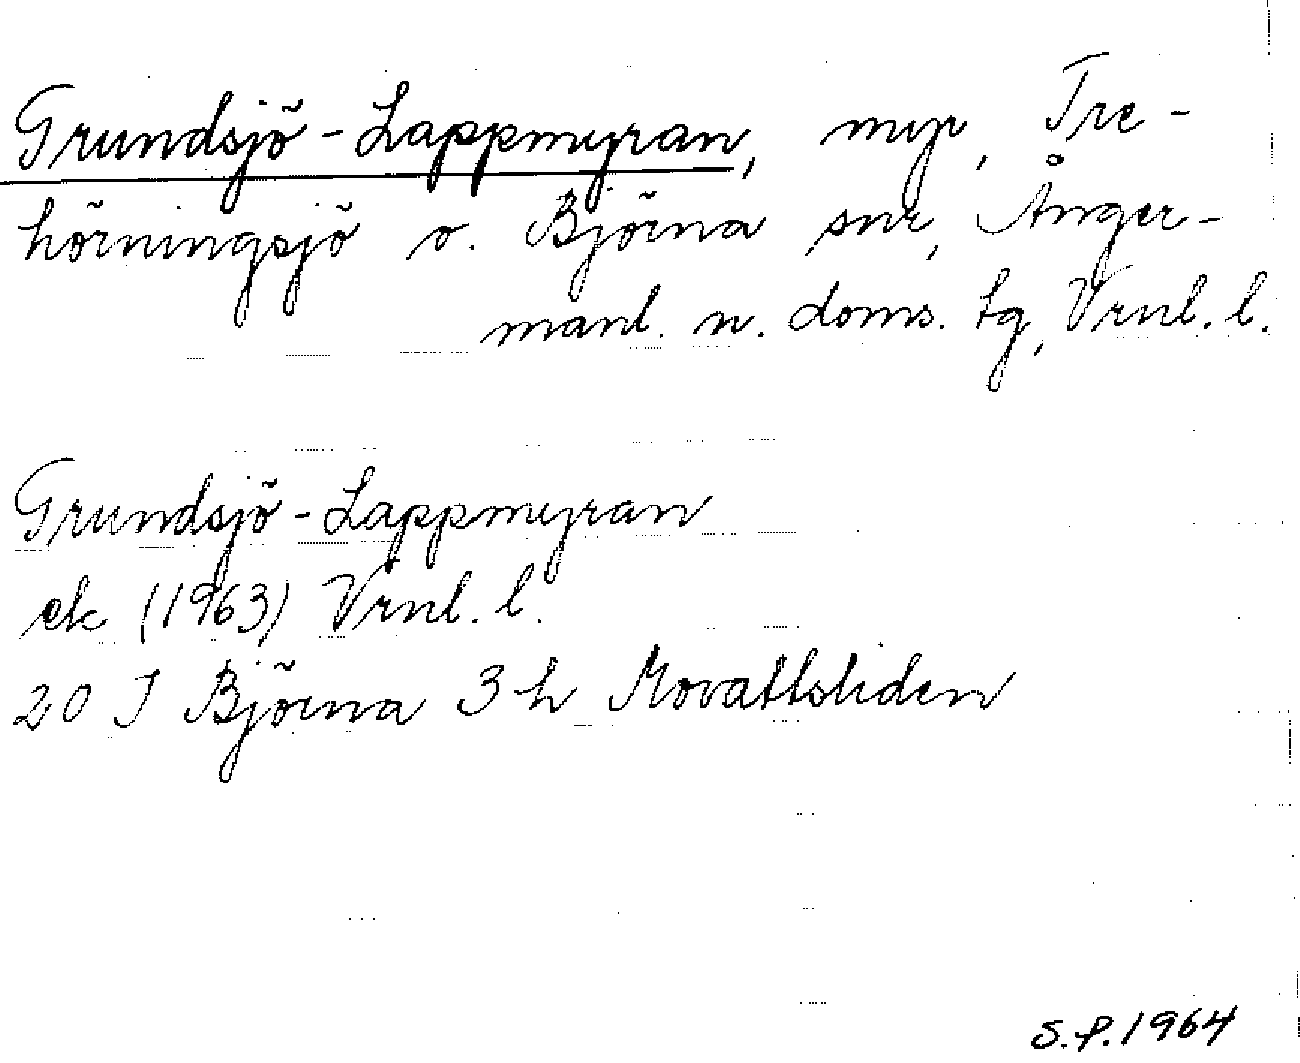 Grundsjö-Lappmyran, myr, Tre-
hörningsjö o. Björna snr, Ånger-
manl. n. doms. tg, Vrnl. l.
Grundsjö-Lappmyran
ek (1963) Vrnl. l.
20 I Björna 3 h Movattsliden
S.P. 1964